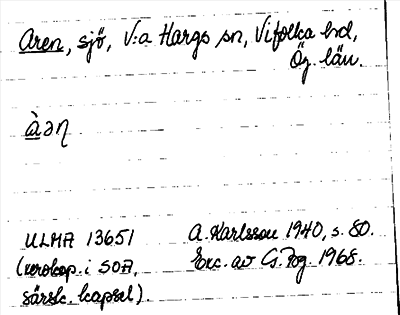 Aren, sjö, V:a Hargs sn, Vifolka hd,
Ög. län.
àəη
ULMA 13651
(xerokop. i SOA,
särsk. kapsel).
A. Karlsson 1940, s. 80.
Exc. av G. Fog 1968.